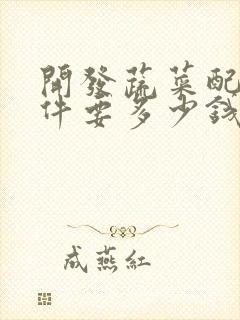 開發蔬菜配
件要多少錢
成燕紅